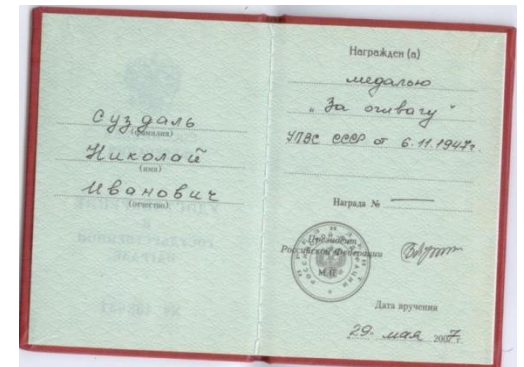 Суздаль
(фамилия)
Николай
(имя)
Иванович
(отчество)
Награжден (а)
медалью
„За отвагу“
УПВС СССР от 6.11.1947г.
Награда № —
Президент
Российской Федерации
М.П.
Дата вручения
29. мая 2007 г.